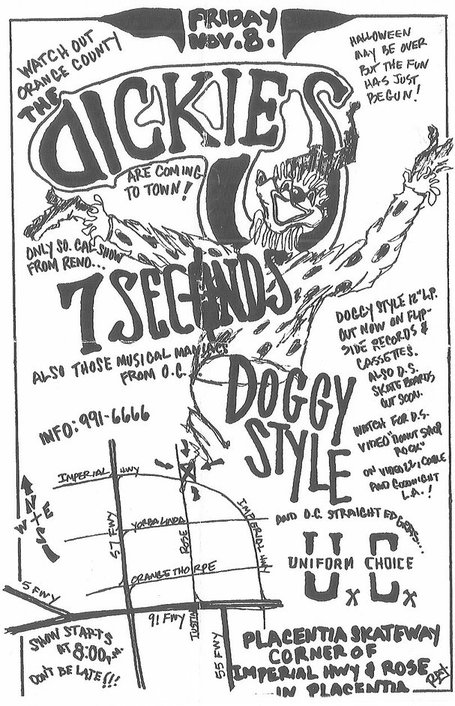 FRIDAY
NOV. 8.
WATCH OUT
ORANGE COUNTY
THE
DICKIES
ARE COMING
TO TOWN!
HALLOWEEN
MAY BE OVER
BUT THE FUN
HAS JUST
BEGUN!
ONLY SO. CAL SHOW
FROM RENO...
7 SECONDS
ALSO THOSE MUSICAL MANIACS
FROM O.C.
DOGGY
STYLE
DOGGY STYLE 12" L.P.
OUT NOW ON FLIP-
SIDE RECORDS &
CASSETTES.
ALSO D.S.
SKATE BOARDS
OUT SOON.
WATCH FOR D.S.
VIDEO "DONUT SHOP
ROCK"
ON VIDEO 22, CABLE
AND GOODNIGHT
L.A.!
INFO: 991-6666
AND O.C. STRAIGHT EDGERS...
UNIFORM CHOICE
U.C.
X X
IMPERIAL HWY
YORBA LINDA
ORANGETHORPE
IMPERIAL HWY
57 FWY
ROSE
TUSTIN
5 FWY
91 FWY
55 FWY
N
W E
S
SHOW STARTS
AT 8:00 P.M.
DON'T BE LATE!!!
PLACENTIA SKATEWAY
CORNER OF
IMPERIAL HWY & ROSE
IN PLACENTIA